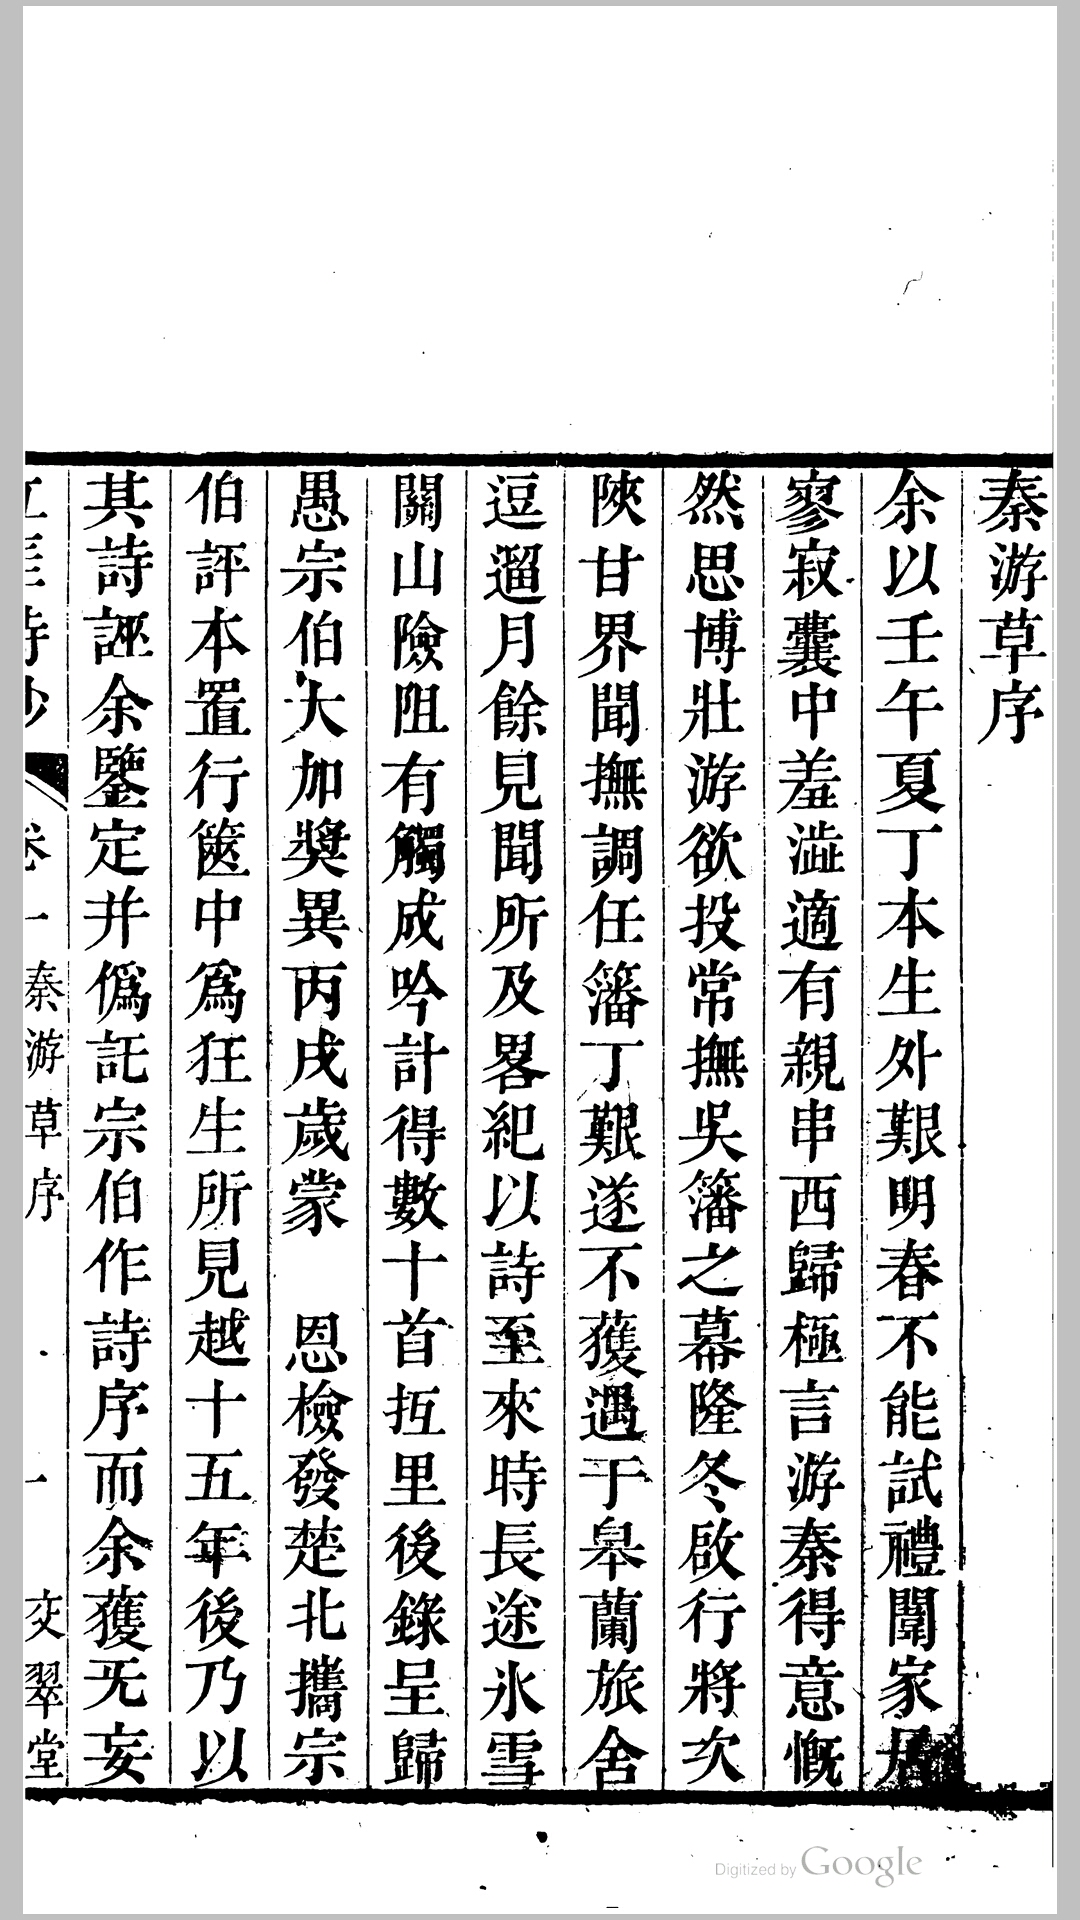 秦游草序
余以壬午夏丁本生外艱明春不能試禮闈家居
寥寂囊中羞澁適有親串西歸極言游秦得意慨
然思博壯游欲投常撫吳籓之幕隆冬啟行將次
陝甘界聞撫調任籓丁艱遂不獲遇于皋蘭旅舍
逗遛月餘見聞所及畧紀以詩至來時長途氷雪
關山險阻有觸成吟計得數十首抵里後錄呈歸
愚宗伯大加奬異丙戌歲蒙 恩檢發楚北攜宗
伯評本置行篋中爲狂生所見越十五年後乃以
其詩誣余鑒定并僞託宗伯作詩序而余獲无妄
卷一 秦游草序 一 交翠堂
Digitized by Google